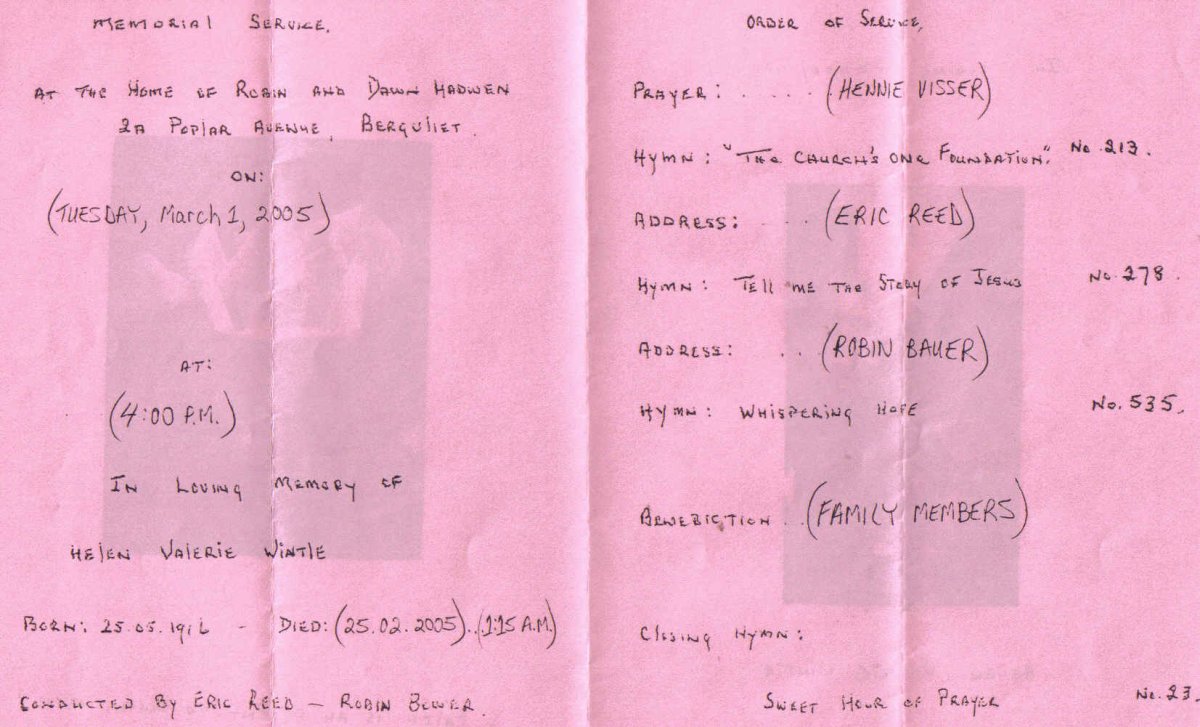 MEMORIAL SERVICE.
AT THE HOME OF ROBIN AND DAWN HADWEN
2A POPLAR AVENUE, BERGVLIET.
ON:
(TUESDAY, March 1, 2005)
AT:
(4:00 P.M.)
IN LOVING MEMORY OF
HELEN VALERIE WINTLE
BORN: 25.05.1916 - DIED: (25.02.2005)..(1:15 A.M.)
CONDUCTED BY ERIC REED – ROBIN BOWER.
ORDER OF SERVICE,
PRAYER: .... (HENNIE VISSER)
HYMN: "THE CHURCH'S ONE FOUNDATION". No. 213.
ADDRESS: .... (ERIC REED)
HYMN: TELL ME THE STORY OF JESUS No. 278.
ADDRESS: .. (ROBIN BAUER)
HYMN: WHISPERING HOPE No. 535.
BENEDICTION .. (FAMILY MEMBERS)
CLOSING HYMN:
SWEET HOUR OF PRAYER No. 23.